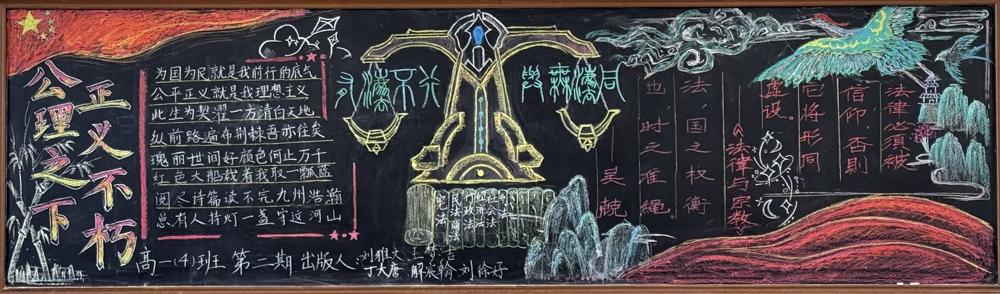 公理之下
正义不朽
为国为民就是我前行的底气
公平正义就是我理想主义
此生为契濯一方清白天地
纵前路遍布荆棘吾亦往矣
瑰丽世间好颜色何止万千
红色大船载着我取一瓢蓝
阅尽诗篇读不完九州浩瀚
总有人持灯一盏守这河山
高一(4)班 第二期 出版人:刘雅文 王梦
丁大唐 解辰翰 刘徐好
有法不行
与无法同
宪法
民法商法
行政法
经济法
社会法
刑法
法,国之权衡
也,时之准绳。
——吴兢
法律必须被
信仰,否则
它将形同
虚设。
——《法律与宗教》